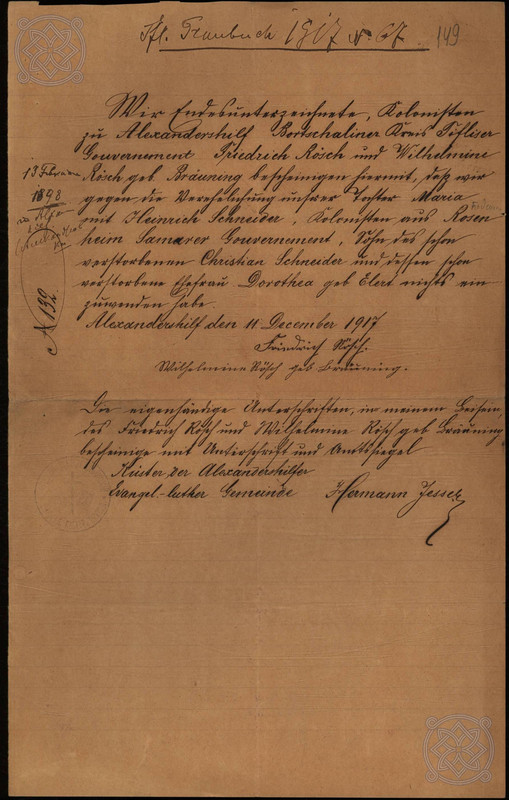 Tfl. Traubuch 1917 No 67.
149
Wir Endesunterzeichnete, Kolonisten
zu Alexandershilf Bortschaliner Kreis Tifliser
Gouvernement Friedrich Rösch und Wilhelmine
Rösch geb Bräuning bescheinigen hiermit, daß wir
gegen die Verehelichung unsrer Tochter Maria
mit Heinrich Schneider, Kolonisten aus Rosen
heim Samarer Gouvernement, Sohn des schon
verstorbenen Christian Schneider und dessen schon
verstorbene Ehefrau Dorothea geb Elert nichts ein
zuwenden habe.
Alexandershilf den 11 December 1917
Friedrich Rösch.
Wilhelmine Rösch geb Bräuning.
18 Februar
1898
No 132
Die eigenhändige Unterschriften, in meinem Beisein,
des Friedrich Rösch und Wilhelmine Rösch geb Bräuning
bescheinige mit Unterschrift und Amtssiegel
Küster der Alexandershilfer
Evangel.-luther Gemeinde Hermann Jesser